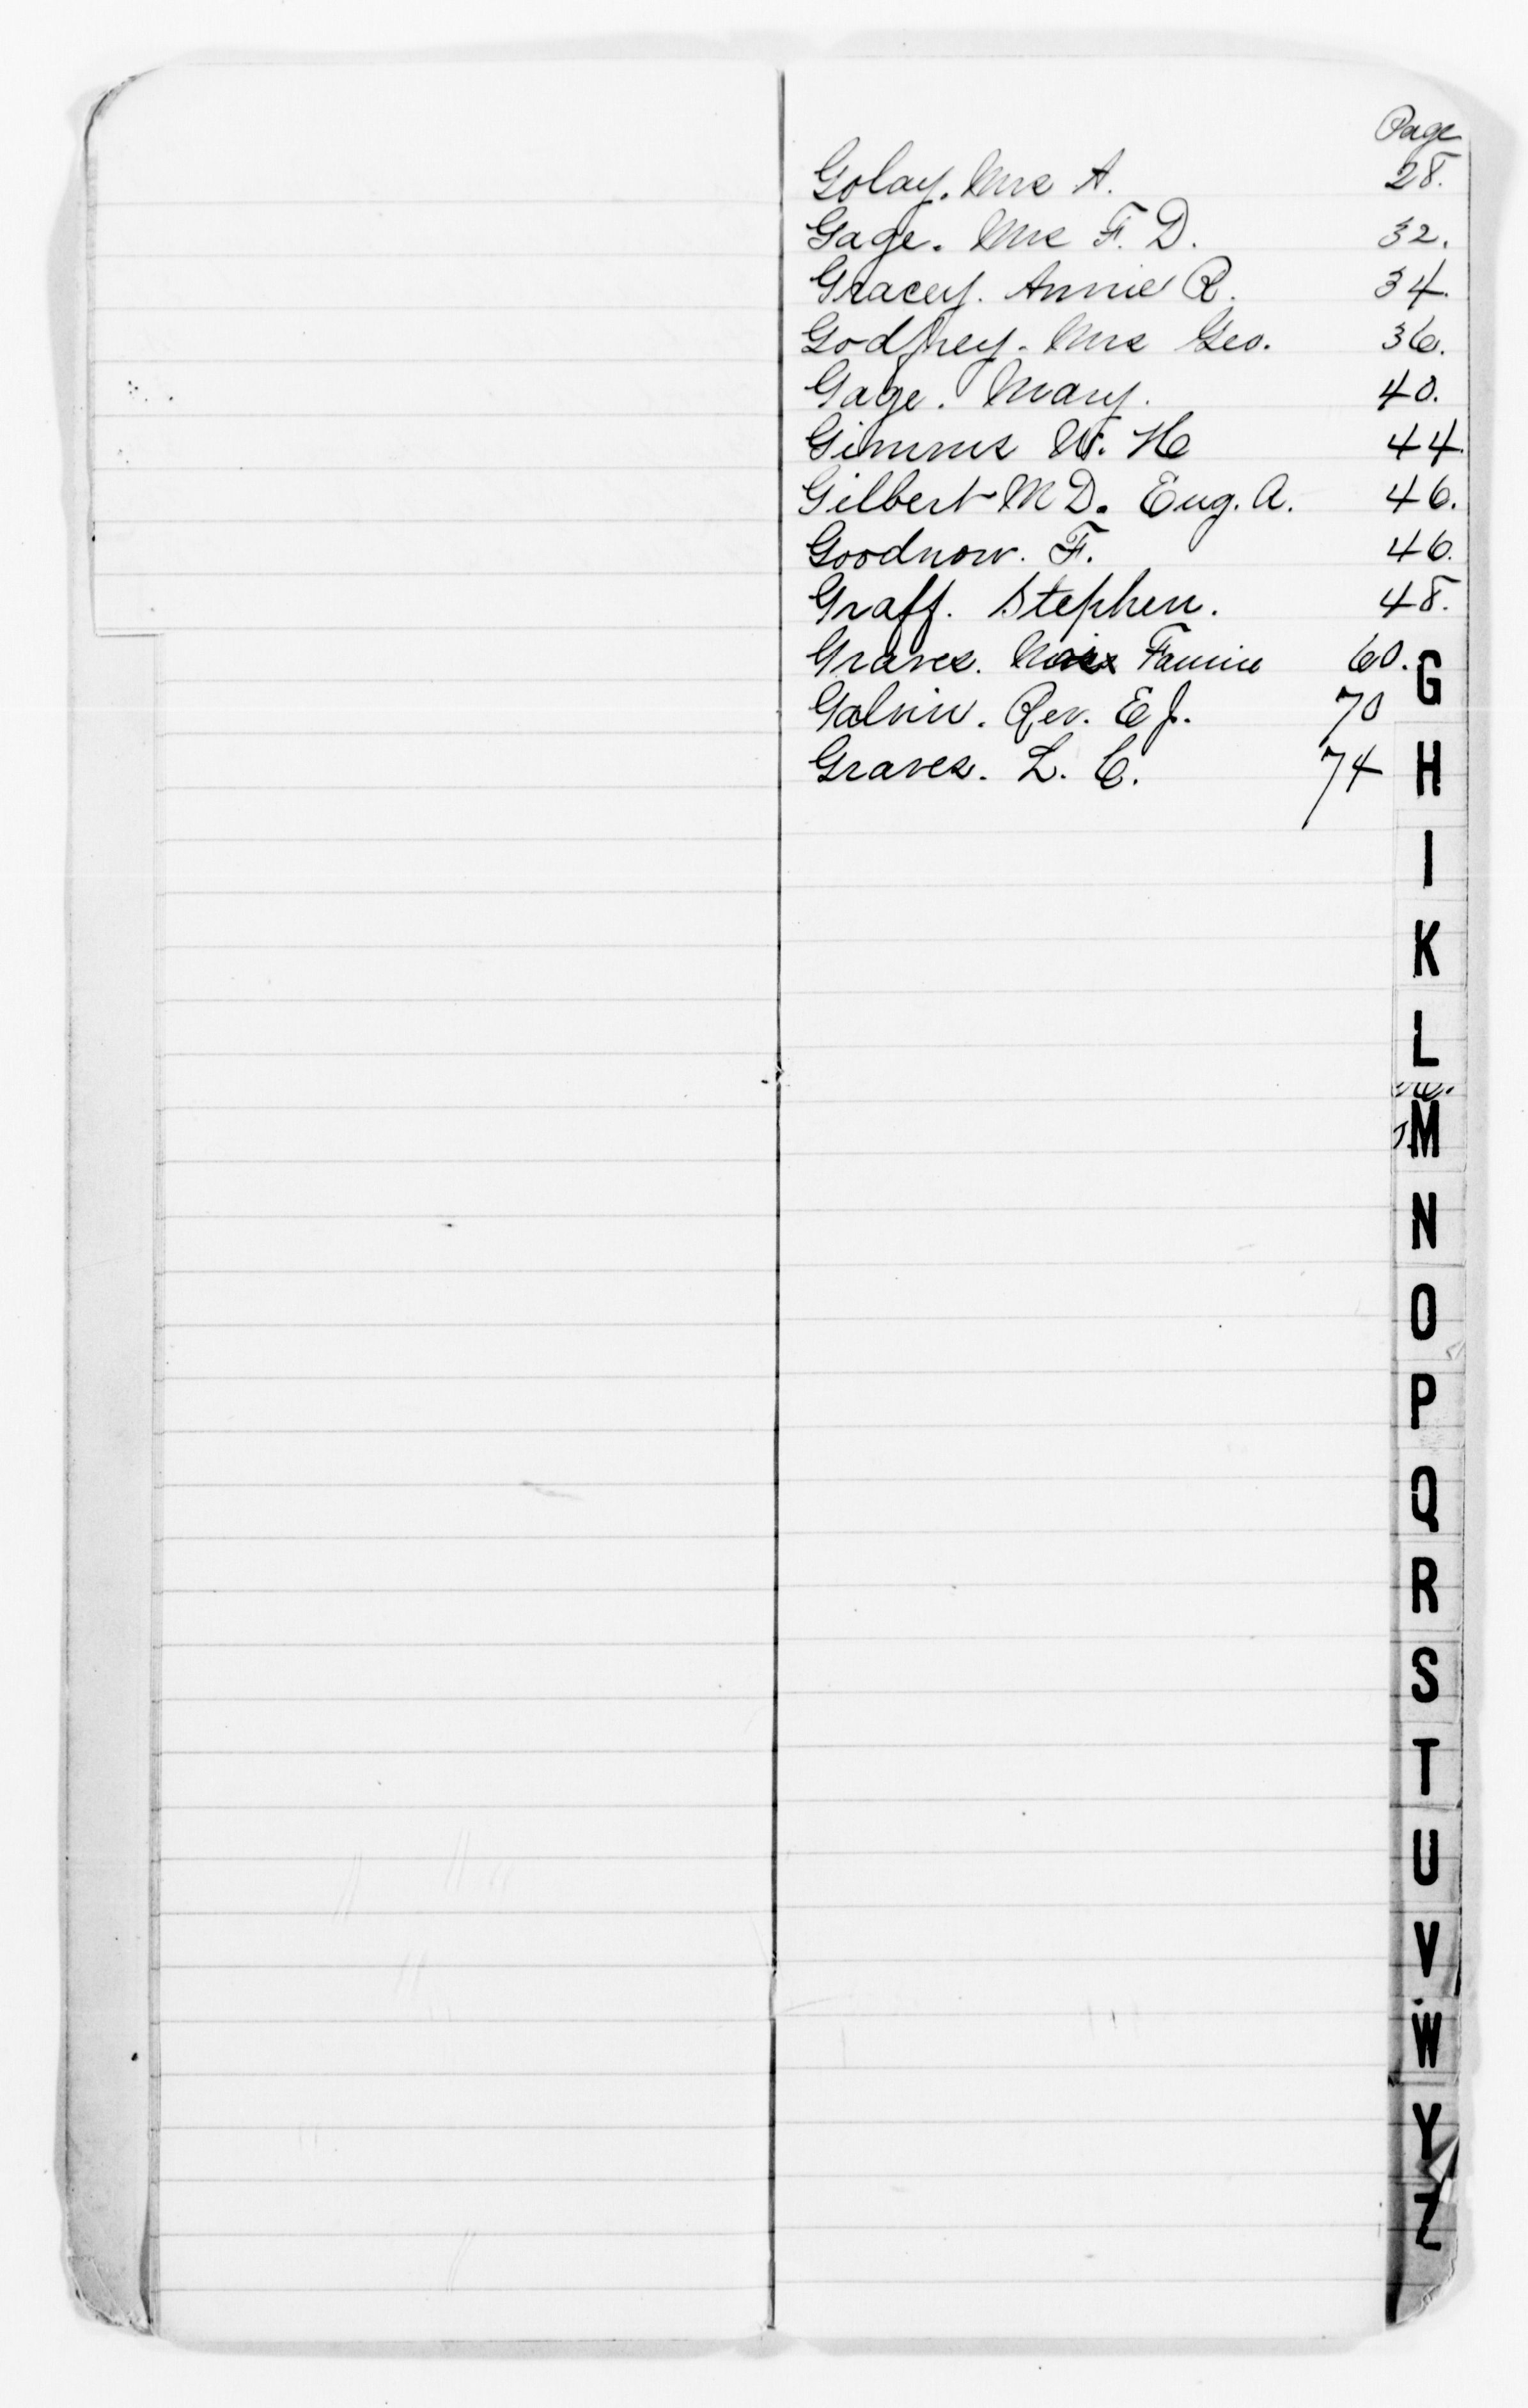 Page
Golay. Mrs A. 28.
Gage. Mrs F. D. 32.
Gracey. Annie R. 34.
Godfrey. Mrs Geo. 36.
Gage. Mary. 40.
Gimms W. H 44.
Gilbert M D. Eug. A. 46.
Goodnow. F. 46.
Graff. Stephen. 48.
Graves. Miss Fannie 60.
Galvin. Rev. E J. 70
Graves. L. C. 74
G
H
I
K
L
M
N
O
P
Q
R
S
T
U
V
W
Y
Z